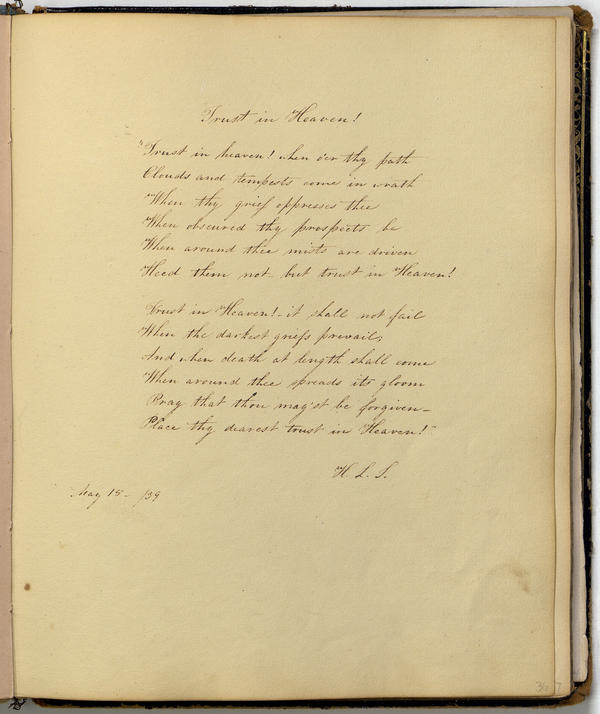 Trust in Heaven!
"Trust in heaven! when o'er thy path
Clouds and tempests come in wrath
When thy grief oppresses thee
When obscured thy prospects be
When around thee mists are driven
Heed them not - but trust in Heaven!
Trust in Heaven! - it shall not fail
When the darkest griefs prevail,
And when death at length shall come
When around thee spreads its gloom
Pray that thou may'st be forgiven -
Place thy dearest trust in Heaven!"
H. L. S.
May 15 - /39